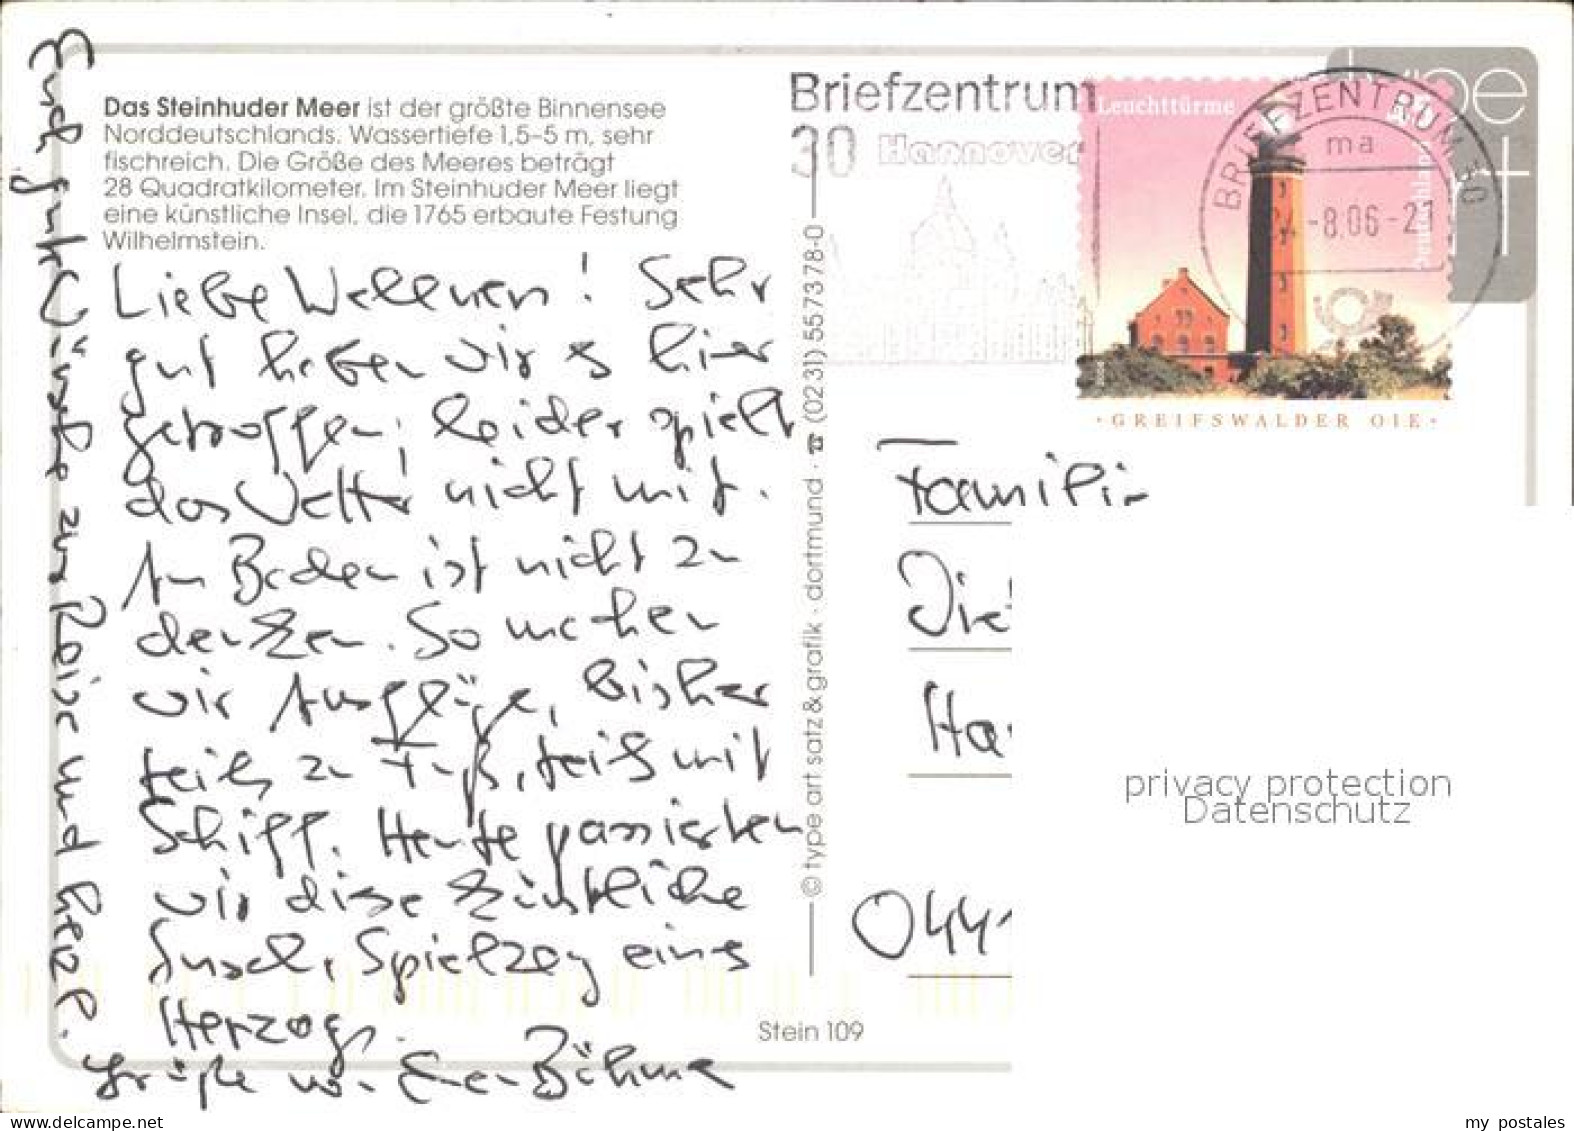 Das Steinhuder Meer ist der größte Binnensee
Norddeutschlands. Wassertiefe 1,5–5 m, sehr
fischreich. Die Größe des Meeres beträgt
28 Quadratkilometer. Im Steinhuder Meer liegt
eine künstliche Insel, die 1765 erbaute Festung
Wilhelmstein.
Liebe ! Sehr
gut haben wir es hier
getroffen; leider spielt
das Wetter nicht mit.
An Baden ist nicht zu
denken. So machen
wir Ausflüge, bisher
teils zu Fuß, teils mit
Schiff. Heute passierten
wir diese künstliche
Insel, Spielzeug eines
Herzogs.
Euch gute Wünsche zur Reise und herzl.
Grüße von Euren Böhms
© type art satz & grafik · dortmund · ☎ (02 31) 55 73 78-0
Stein 109
Briefzentrum
30 Hannover
Leuchttürme
Deutschland
BRIEFZENTRUM 30
ma
24.-8.06-21
type
rt
·GREIFSWALDER OIE·
Familie
Die
Ha
044
privacy protection
Datenschutz
www.delcampe.net
my_postales